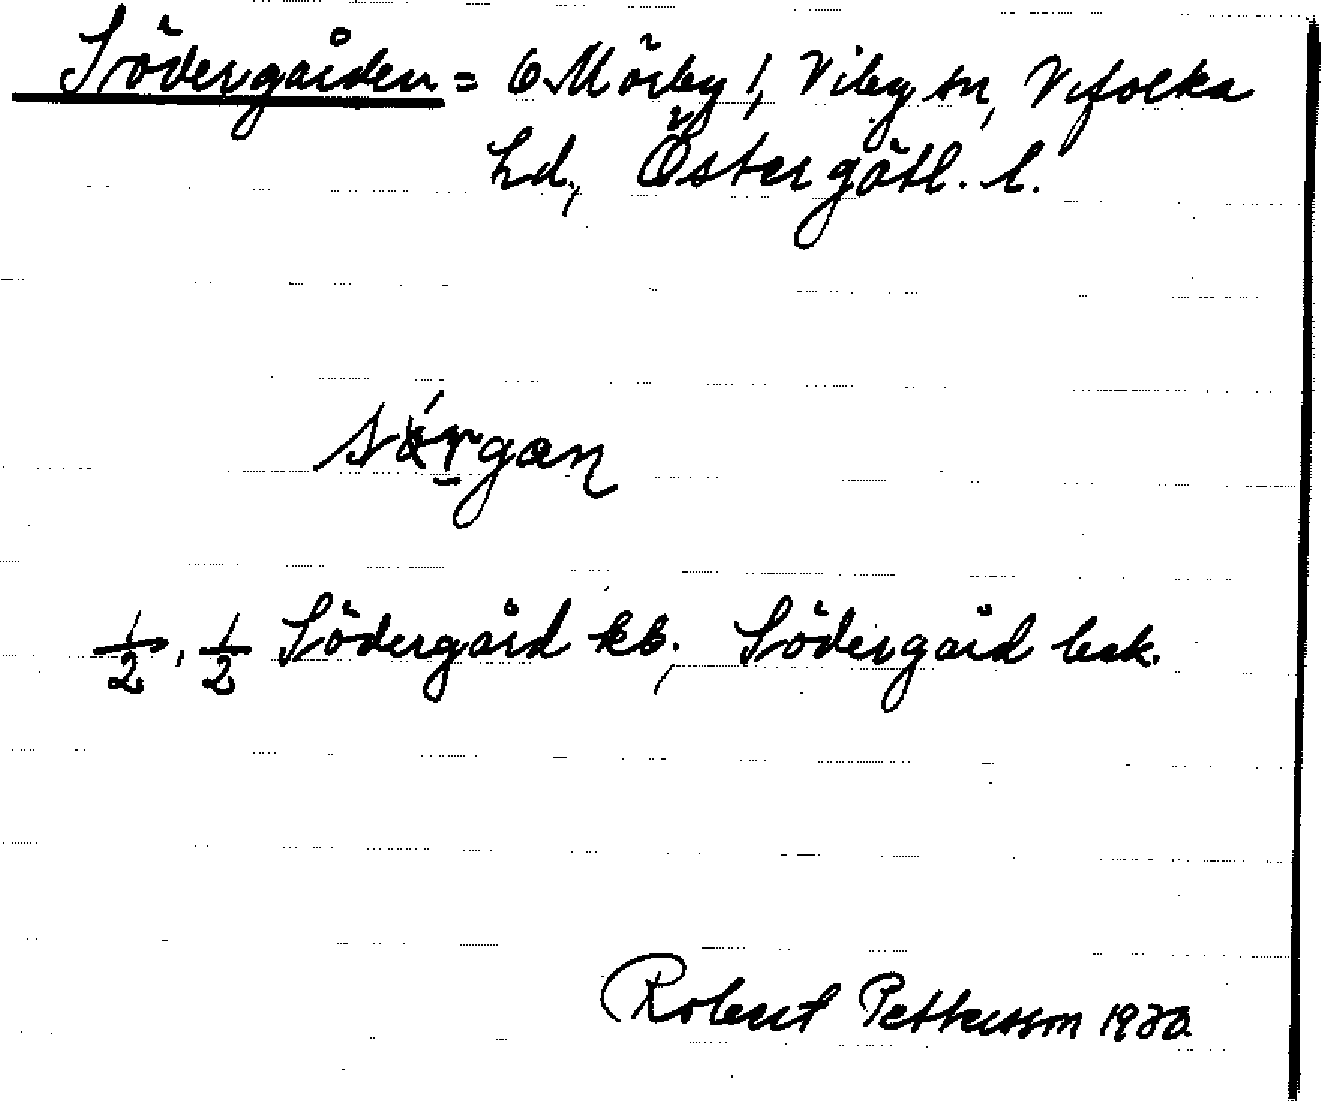 Södergården = 6 Mörby 1, Viby sn, Vifolka
hd, Östergötl. l.
sǿr̠gan
1/2, 1/2 Södergård kb. Södergård bek.
Robert Pettersson 1930.